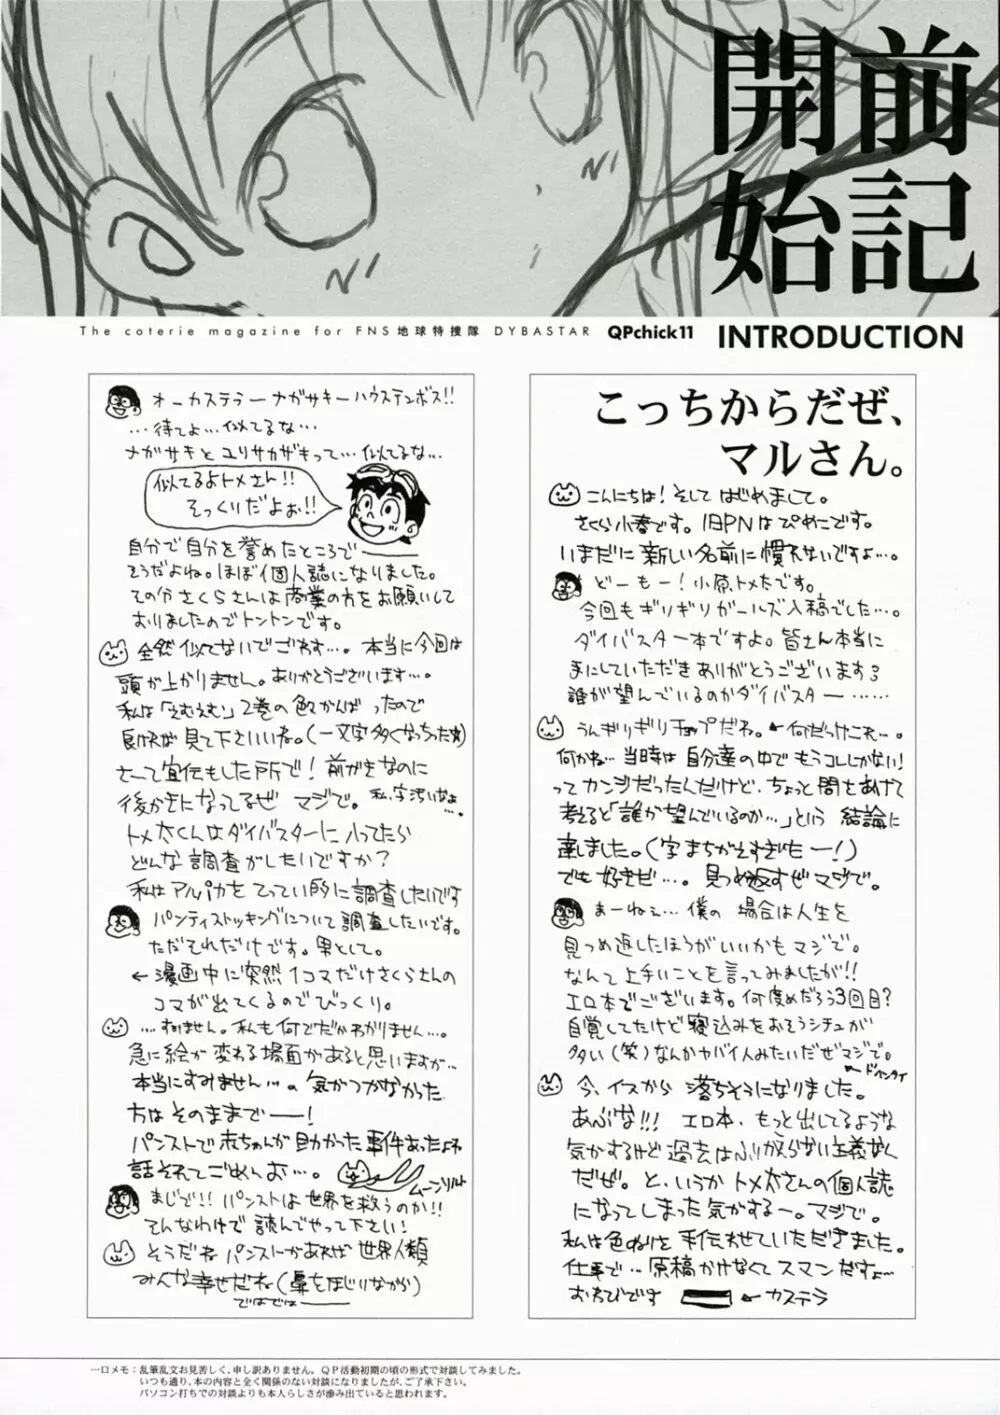 開前
始記
The coterie magazine for FNS地球特捜隊 DYBASTAR QPchick11 INTRODUCTION
こっちからだぜ、
マルさん。
こんにちは！そして はじめまして。
さくら小春です。旧PNはぴめこです。
いまだに新しい名前に慣れないですよ…。
どーもー！小原トメ太です。
今回もギリギリガールズ入稿でした…。
ダイバスター本ですよ。皆さん本当に
手にしていただきありがとうございます
誰が望んでいるのかダイバスター……
うんギリギリチョップだね。←何だっけこれ…。
何かね…当時は自分達の中でもうコレしかない！
ってカンジだったんだけど、ちょっと間をあけて
考えると「誰が望んでいるのか…」という 結論に
達しました。（字まちがえすぎたー！）
でも好きだ…。見つめ返すぜマジで。
まーねぇ…僕の 場合は人生を
見つめ返したほうがいいかもマジで。
なんて上手いことを言ってみましたが!!
エロ本でございます。何度めだろう3回目？
自覚してたけど寝込みをおそうシチュが
多い（笑）なんかヤバイ人みたいだぜマジで。
今、イスから 落ちそうになりました。
あぶな!!! エロ本、もっと出してるような
気がするけど過去はふりかえらない主義なく
だぜ。と、いうか トメ太さんの個人誌
になってしまった気がするー。マジで。
私は色ぬりを手伝わせていただきました。
仕事で…原稿かけなくてスマンだすょ…
おわびです ←カステラ
オーカステラーナガサキーハウステンボス!!
…待てよ…似てるな…
ナガサキとユリサカザキって…似てるな…
似てるよトメさん!!
そっくりだよぉ!!
自分で自分を誉めたところで――
そうだよね。ほぼ個人誌になりました。
その分さくらさんは商業の方をお願いして
おりましたのでトントンです。
全然似てないでござわす…。本当に今回は
頭が上がりません。ありがとうございます…。
私は「えむえむ」2巻の色でがんばったので
良ければ見て下さいいね。（一文字多くなっちった☆）
さーて宣伝もした所で！前がきなのに
後がきになってるぜ マジで。私、字汚いなょ…。
トメ太くんはダイバスターに入ってたら
どんな調査がしたいですか？
私はアルパカをてってい的に調査したいです
パンティストッキングについて調査したいです。
ただそれだけです。男として。
←漫画中に突然1コマだけさくらさんの
コマが出てくるのでびっくり。
…すみません。私も何でだかわかりません…。
急に絵が変わる場面があると思いますが…
本当にすみません…。気がつかなかった
方はそのままで――！
パンストで赤ちゃんが助かった事件あったよね
話それてごめんお…。
ムーンソルト
まじで!! パンストは世界を救うのか!!
そんなわけで読んでやって下さい！
そうだね パンストがあれば世界人類
みんな幸せだね（鼻をほじりながら）
ではでは――
一口メモ：乱筆乱文お見苦しく、申し訳ありません。ＱＰ活動初期の頃の形式で対談してみました。
いつも通り、本の内容と全く関係のない対談になりましたが、ご了承下さい。
パソコン打ちでの対談よりも本人らしさが滲み出ていると思われます。